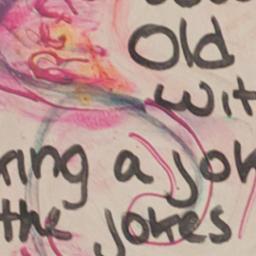 Old
wit
ring a jok
the jokes